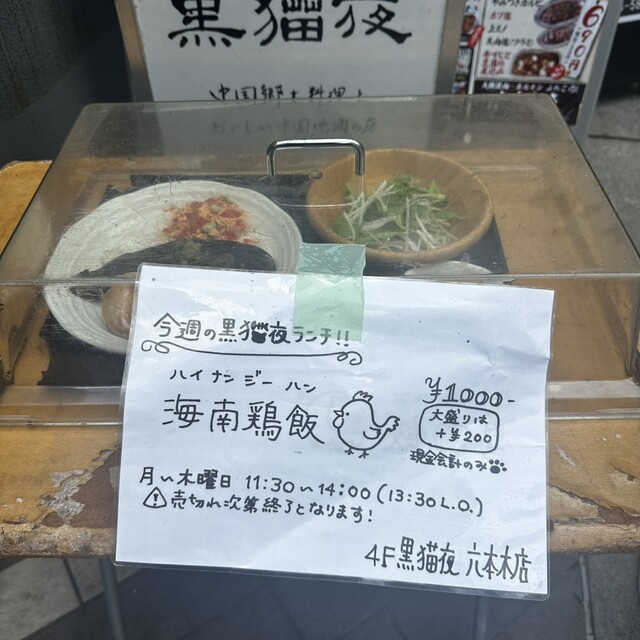 黒猫夜
中国郷土料理と
おいしい中国地酒の店
690円
今週の黒猫夜ランチ!!
ハイ ナン ジー ハン
海南鶏飯
¥1000-
大盛りは
+¥200
現金会計のみ
月〜木曜日 11:30〜14:00(13:30 L.O.)
売切れ次第終了となります!
4F 黒猫夜 六本木店